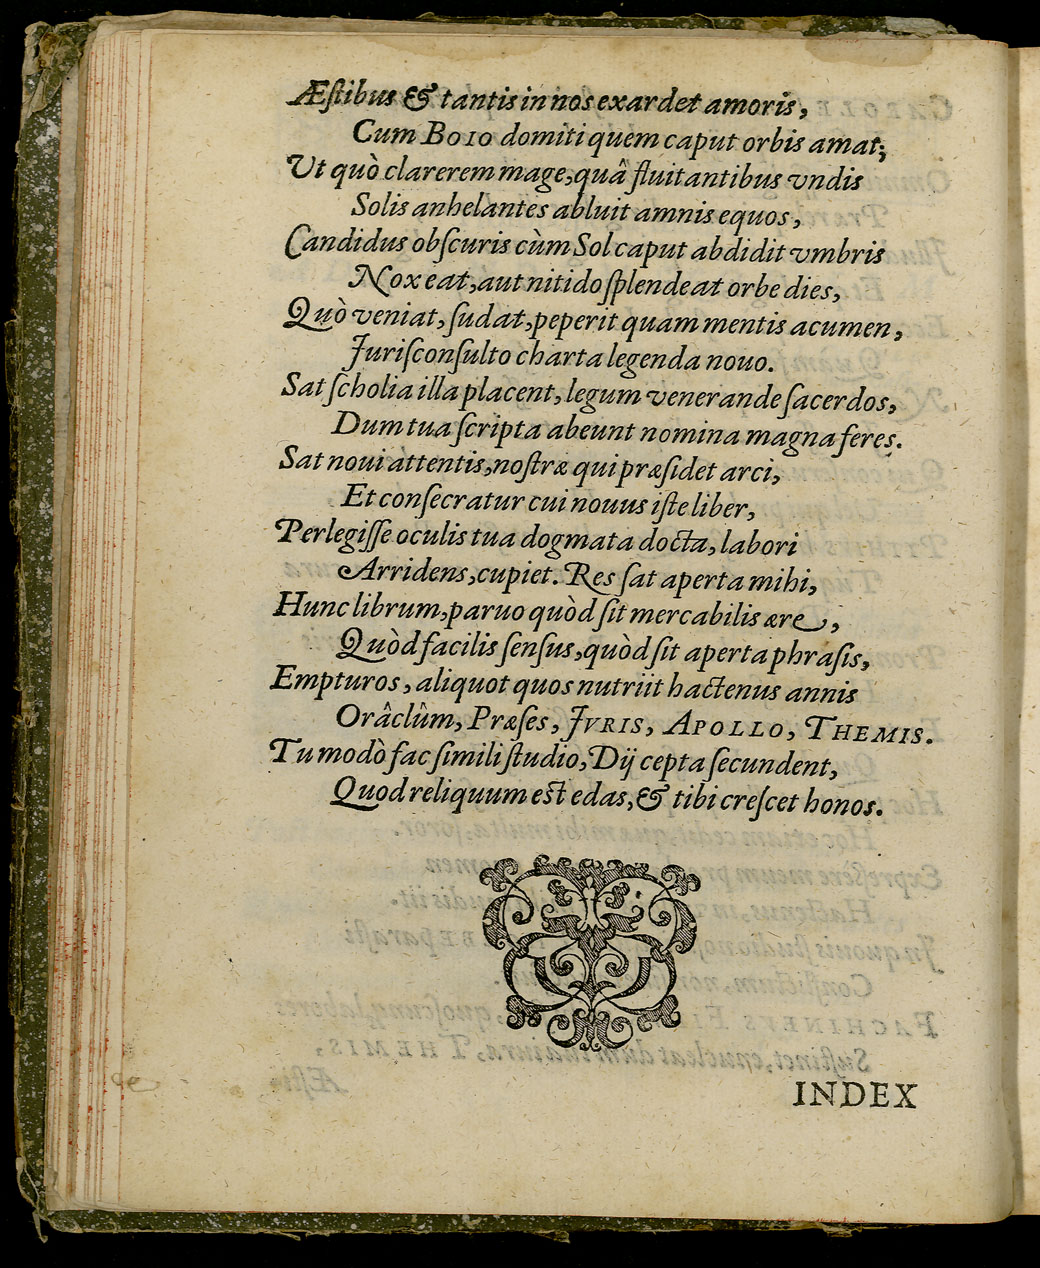 Æſtibus & tantis in nos exardet amoris,
Cum BOIO domiti quem caput orbis amat;
Ut quò clarerem mage, quâ fluitantibus vndis
Solis anhelantes abluit amnis equos,
Candidus obſcuris cùm Sol caput abdidit vmbris
Nox eat, aut nitido ſplendeat orbe dies,
Quò veniat, ſudat, peperit quam mentis acumen,
Juriſconſulto charta legenda nouo.
Sat ſcholia illa placent, legum venerande ſacerdos,
Dum tua ſcripta abeunt nomina magna feres.
Sat noui attentis, noſtræ qui præſidet arci,
Et conſecratur cui nouus iſte liber,
Perlegiſſe oculis tua dogmata docta, labori
Arridens, cupiet. Res ſat aperta mihi,
Hunc librum, paruo quòd ſit mercabilis ære,
Quòd facilis ſenſus, quòd ſit aperta phraſis,
Empturos, aliquot quos nutriit hactenus annis
Orâclûm, Præſes, JVRIS, APOLLO, THEMIS.
Tu modò fac ſimili ſtudio, Dij cepta ſecundent,
Quod reliquum eſt edas, & tibi creſcet honos.
INDEX